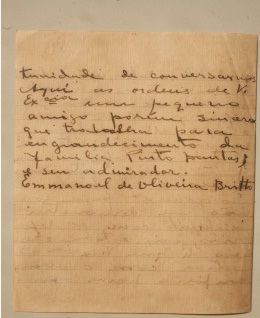 tunidade de conversarmos
Aqui as ordens de V.
Ex.cia um pequeno
amigo porem sincero
que trabalha para
engrandecimento da
familia
e seu admirador.
Emmanoel de Oliveira Britto